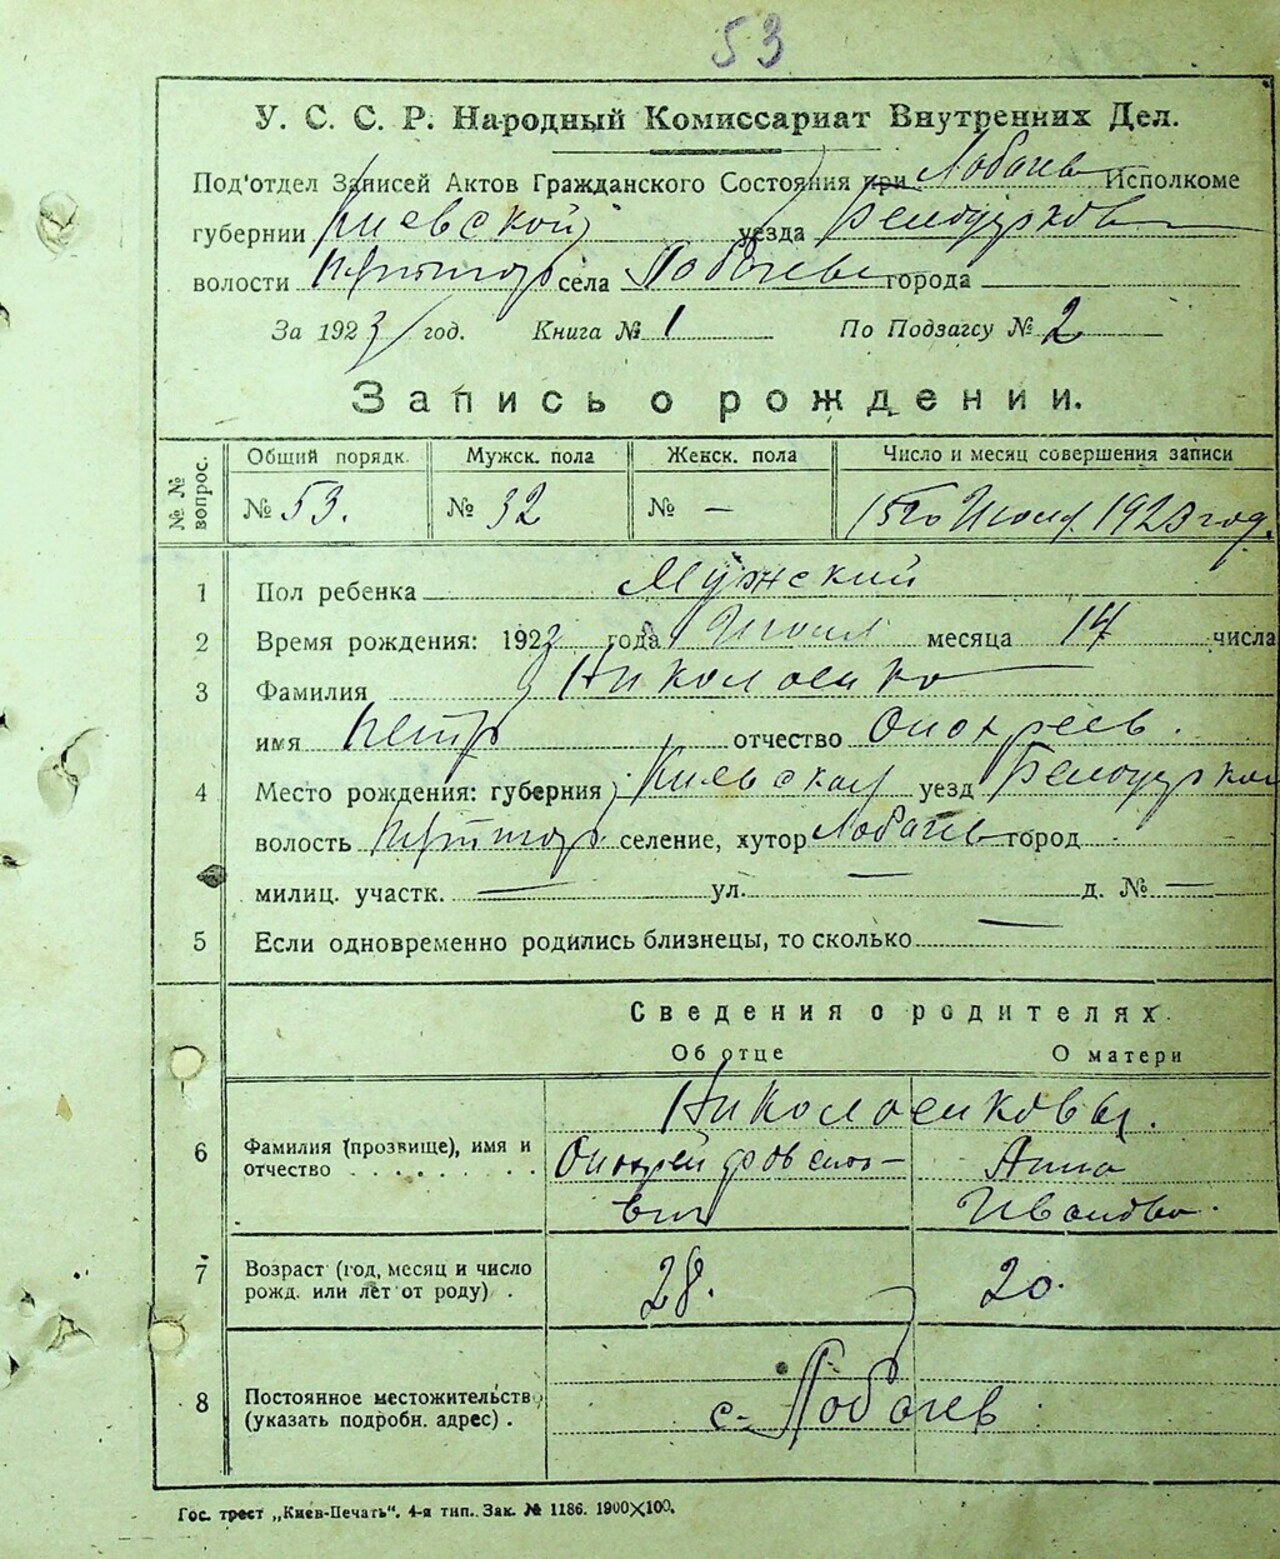 53
У. С. С. Р. Народный Комиссариат Внутренних Дел.
Под'отдел Записей Актов Гражданского Состояния при Лобачев Исполкоме
губернии Киевской уезда Белоцерков
волости села Лобачев города
За 1923 год. Книга № 1 По Подзагсу № 2
Запись о рождении.
№ № вопрос. Общий порядк. Мужск. пола Женск. пола Число и месяц совершения записи
№ 53. № 32 № — 15го Июля 1923 год.
1 Пол ребенка Мужский
2 Время рождения: 1923 года Июля месяца 14 числа
3 Фамилия Николаенко
имя Петр отчество Онохреев.
4 Место рождения: губерния Киевская уезд Белоцерков
волость селение, хутор Лобачев город -
милиц. участк. — ул. — д. № —
5 Если одновременно родились близнецы, то сколько —
Сведения о родителях.
Об отце О матери
Николаенковы.
6 Фамилия (прозвище), имя и
отчество . . . . . . . . Онохрей Анна
вич Иванова.
7 Возраст (год, месяц и число
рожд. или лет от роду) . 28. 20.
8 Постоянное местожительств
(указать подробн. адрес) . с. Лобачев
Гос. трест „Киев-Печать“. 4-я тип. Зак. № 1186. 1900×100.